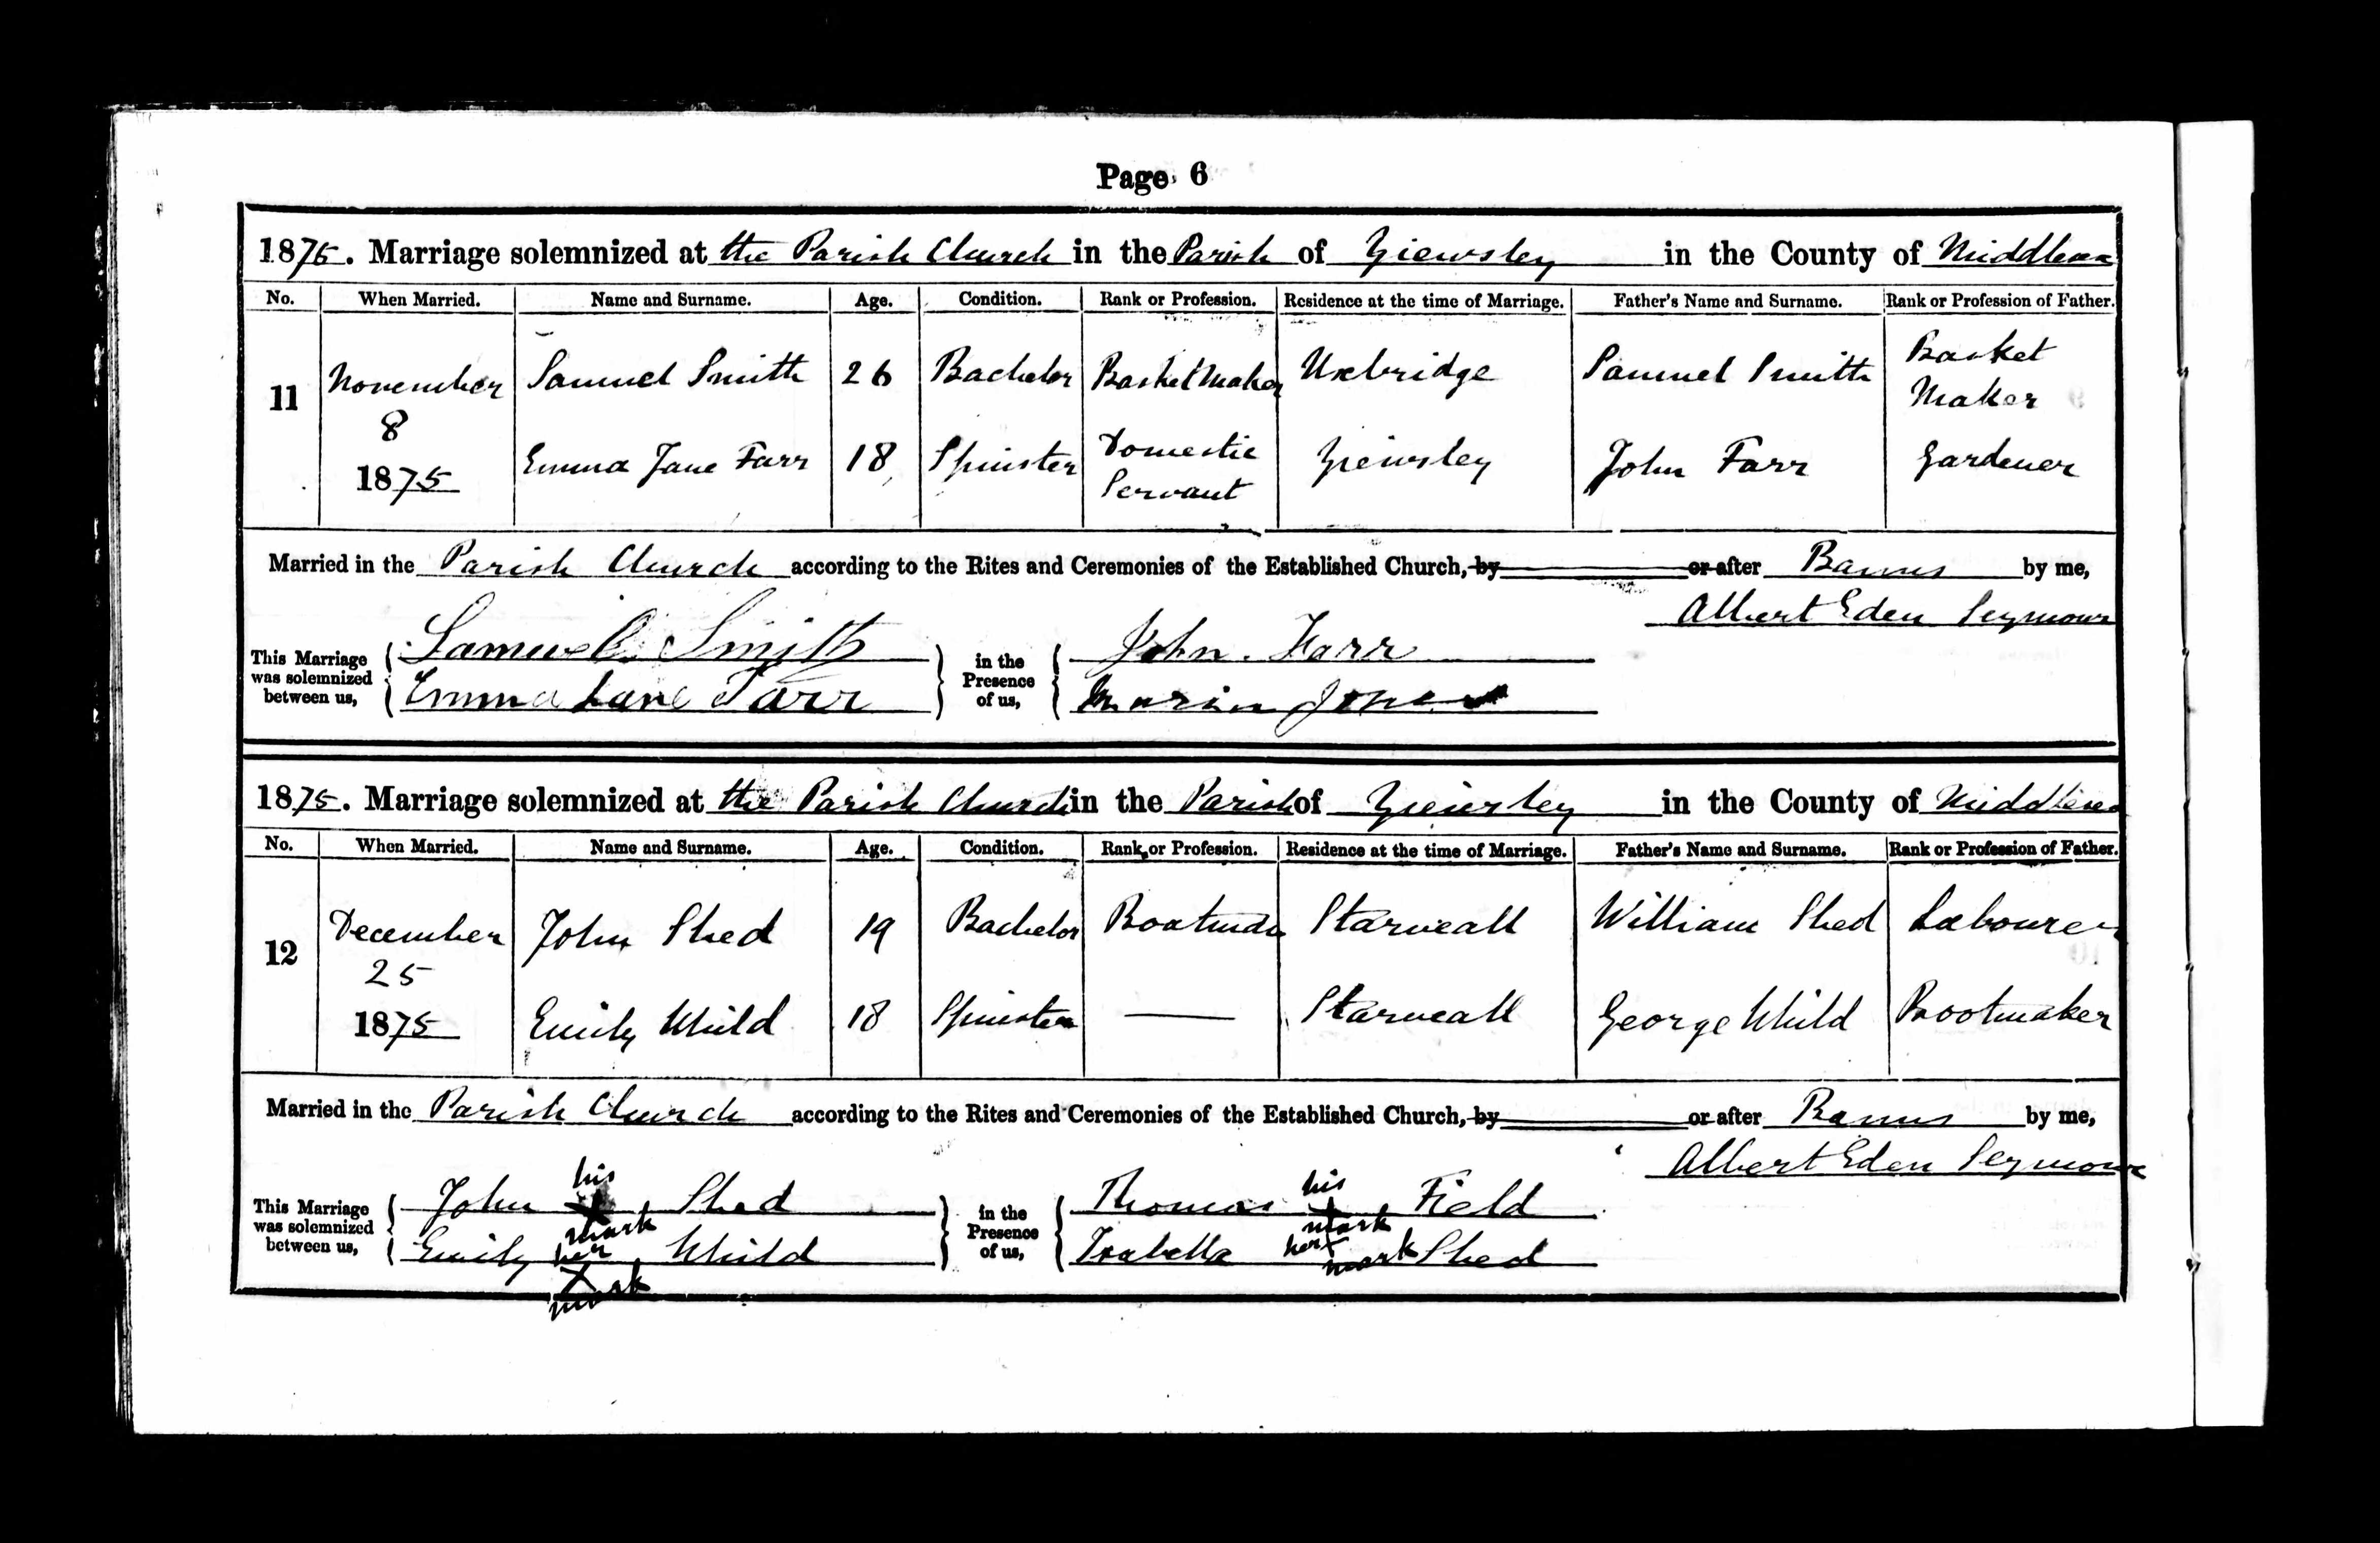 Page 6
1875. Marriage solemnized at the Parish Church in the Parish of Yiewsley in the County of Middlesex
No. When Married. Name and Surname. Age. Condition. Rank or Profession. Residence at the time of Marriage. Father's Name and Surname. Rank or Profession of Father.
11 November 8 1875 Samuel Smith 26 Bachelor Basket Maker Uxbridge Samuel Smith Basket Maker
Emma Jane Farr 18 Spinster Domestic Servant Yiewsley John Farr Gardener
Married in the Parish Church according to the Rites and Ceremonies of the Established Church, by or after Banns by me,
Albert Eden Seymour
This Marriage was solemnized between us, Samuel Smith in the Presence of us, John Farr
Emma Jane Farr Jones
1875. Marriage solemnized at the Parish Church in the Parish of Yiewsley in the County of Middlesex
No. When Married. Name and Surname. Age. Condition. Rank or Profession. Residence at the time of Marriage. Father's Name and Surname. Rank or Profession of Father.
12 December 25 1875 John Shed 19 Bachelor Starveall William Shed Labourer
Emily Whild 18 Spinster — Starveall George Whild Bootmaker
Married in the Parish Church according to the Rites and Ceremonies of the Established Church, by or after Banns by me,
Albert Eden Seymour
This Marriage was solemnized between us, John his X mark Shed in the Presence of us, Thomas his X mark Field
Emily her X mark Whild Isabella her X mark Shed